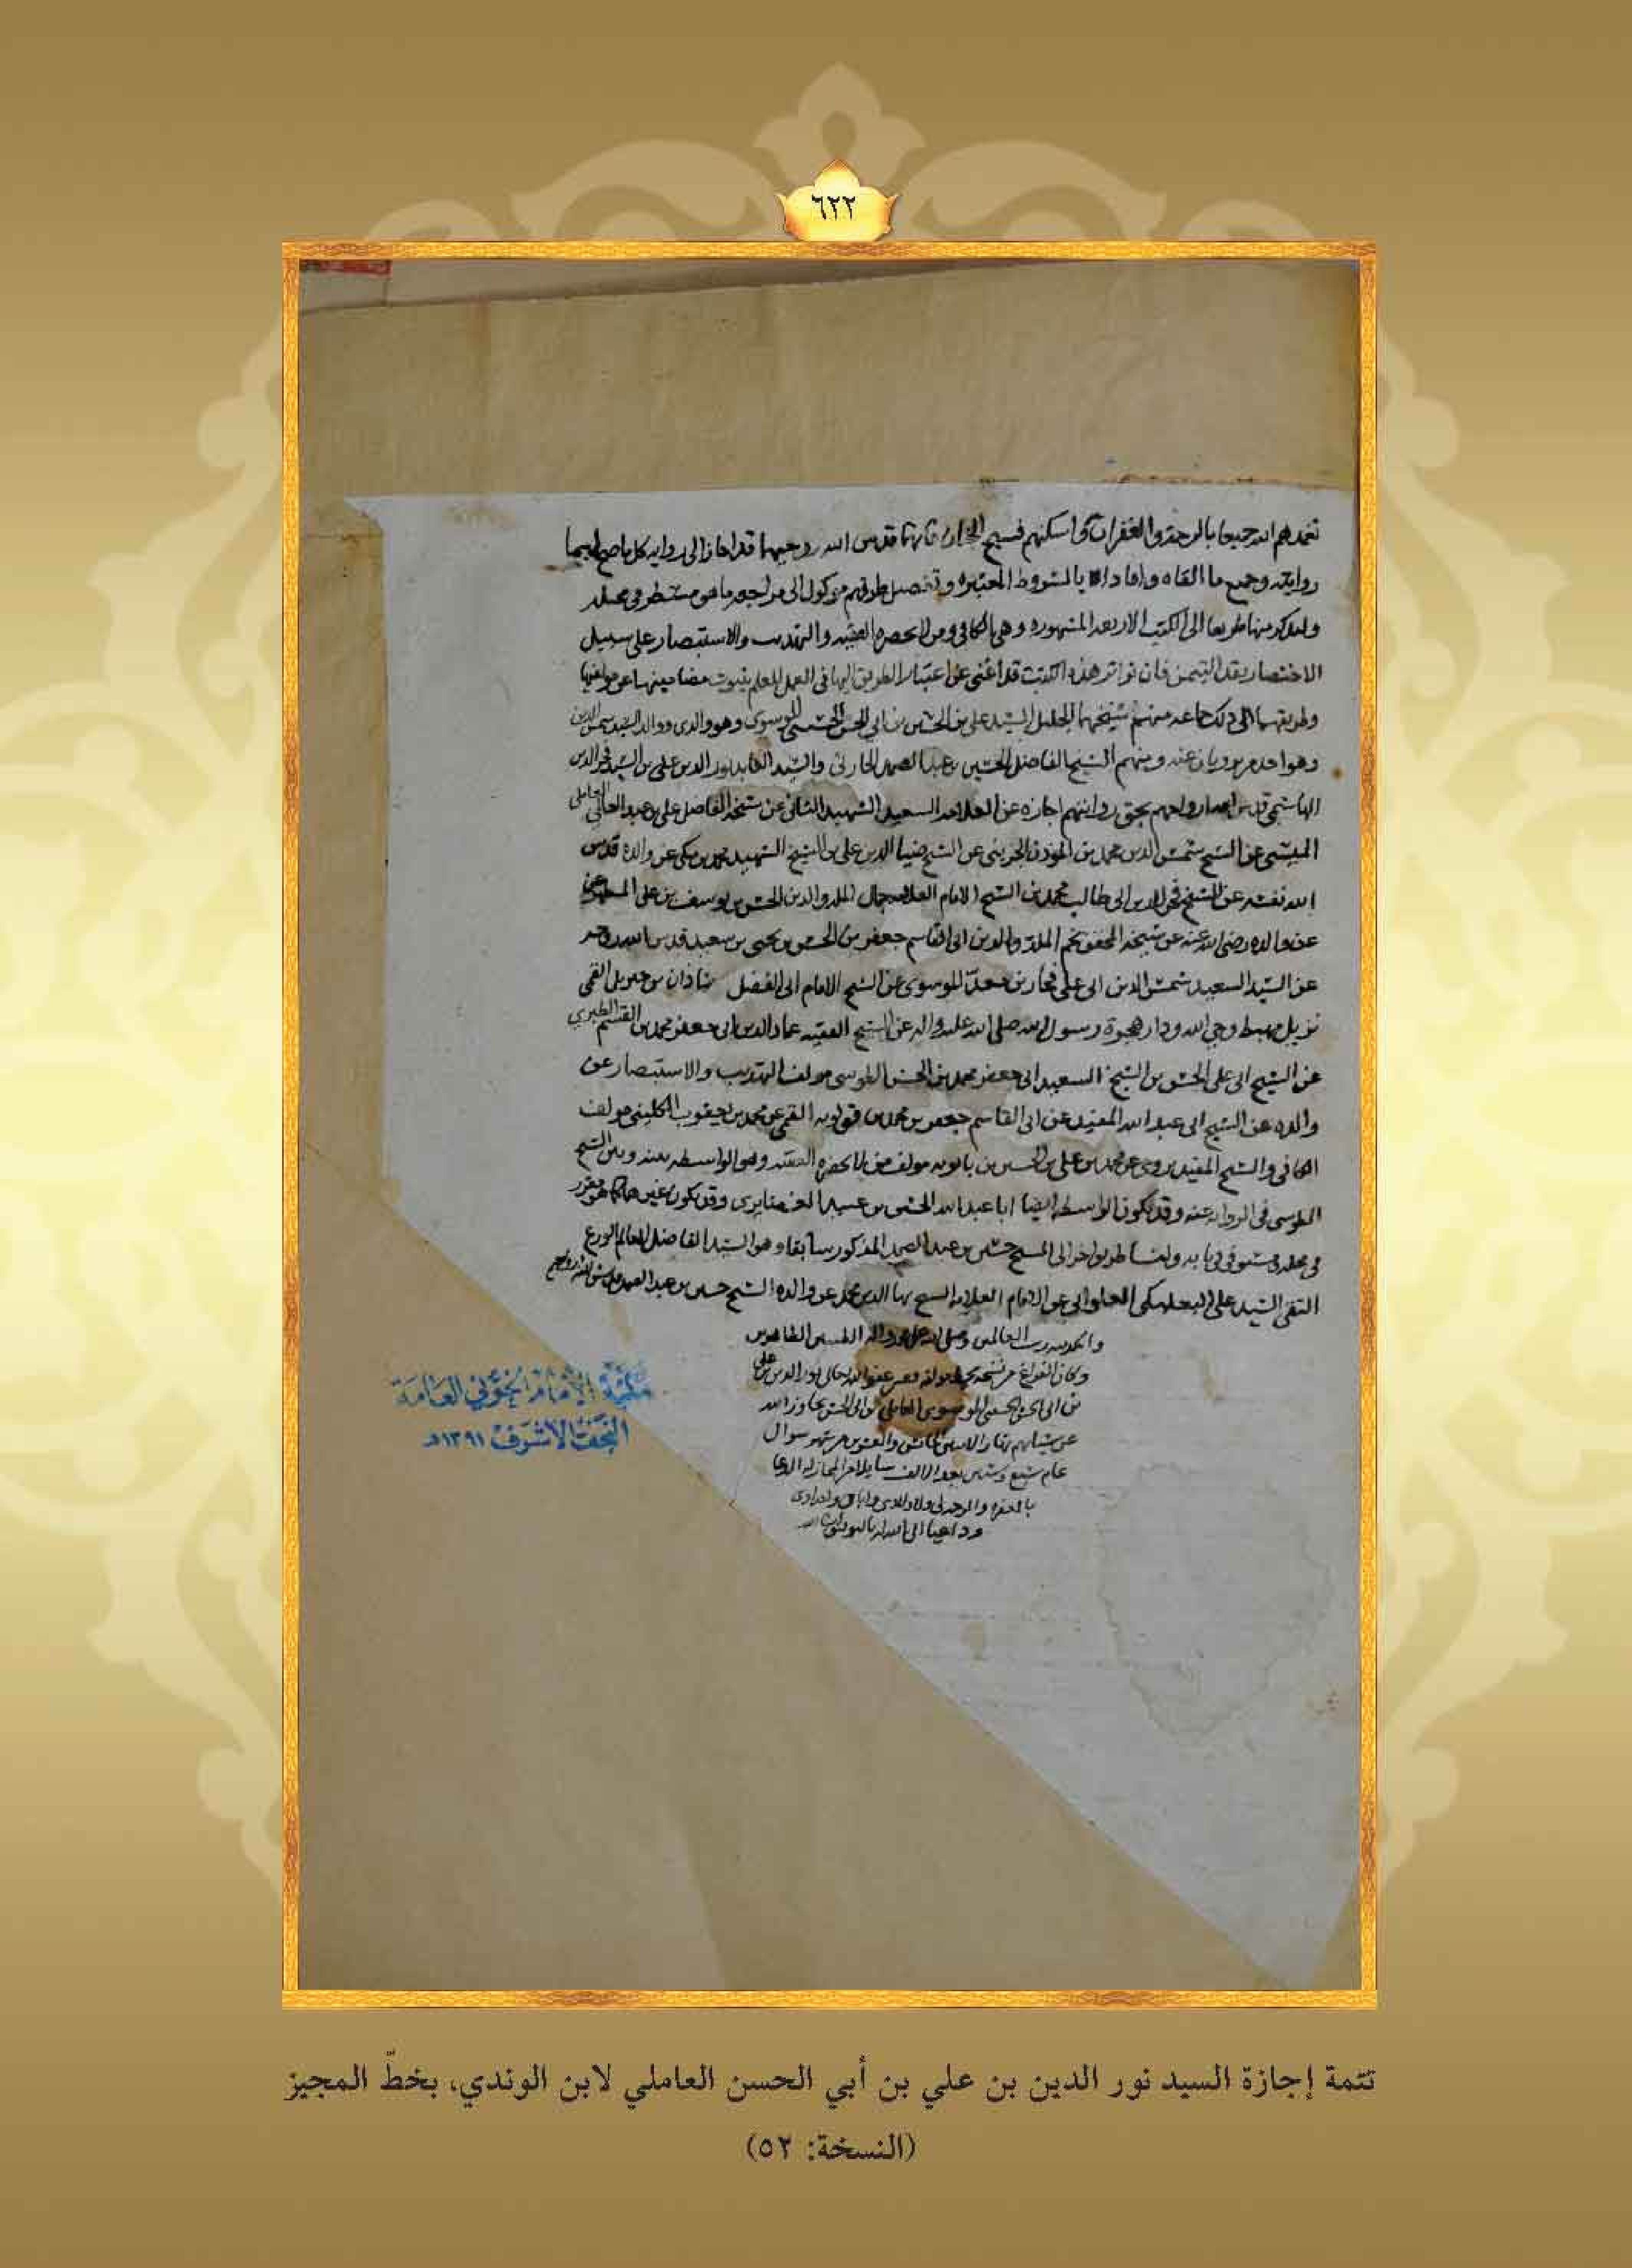 ٦٢٢
تغمدهم الله جميعا بالرحمة والغفران واسكنهم فسيح الجنان قدس الله روحيهما قد اجاز الى رواية كل ما صح لهما
روايته وجميع ما الفاه وافاداه بالشروط المعتبرة وتفصيل طرقهم موكول الى مراجعة ما هو مسطر في محله
ولنذكر منها طريقا الى الكتب الاربعة المشهورة وهي الكافي ومن لا يحضره الفقيه والتهذيب والاستبصار على سبيل
الاختصار بقصد التيمن فان تواتر هذه الكتب قد اغنى عن اعتبار الطريق اليها في العمل للعلم بثبوت مضامينها عن مولفيها
وطريقهما الى ذلك جماعة منهم شيخهما الجليل السيد علي بن الحسين بن ابي الحسن الحسيني الموسوي وهو والدي ووالد السيد شمس الدين
وهو احد من يرويان عنه ومنهم الشيخ الفاضل الحسين بن عبد الصمد الحارثي والسيد العابد نور الدين علي بن السيد فخر الدين
الهاشمي قدس الله ارواحهم بحق روايتهم اجازة عن العلامة السعيد الشهيد الثاني عن شيخه الفاضل علي بن عبد العالي العاملي
الميسي عن الشيخ شمس الدين محمد بن المؤذن الجزيني عن الشيخ ضياء الدين علي بن الشيخ الشهيد محمد بن مكي عن والده قدس
الله نفسه عن الشيخ فخر الدين ابي طالب محمد بن الشيخ الامام العلامة جمال الملة والدين الحسن بن يوسف بن علي المطهر
عن والده رضي الله عنه عن شيخه المحقق نجم الملة والدين ابي القاسم جعفر بن الحسن بن يحيى بن سعيد قدس الله روحه
عن السيد السعيد شمس الدين ابي علي فخار بن معد الموسوي عن الشيخ الامام ابي الفضل شاذان بن جبريل القمي
نزيل مهبط وحي الله ودار هجرة رسول الله صلى الله عليه واله عن الشيخ الفقيه عماد الدين ابي جعفر محمد بن القسم الطبري
عن الشيخ ابي علي الحسن بن الشيخ السعيد ابي جعفر محمد بن الحسن الطوسي مولف التهذيب والاستبصار عن
والده عن الشيخ ابي عبد الله المفيد عن ابي القاسم جعفر بن محمد بن قولويه القمي عن محمد بن يعقوب الكليني مولف
الكافي والشيخ المفيد يروي عن محمد بن علي بن الحسين بن بابويه مولف من لا يحضره الفقيه وهو الواسطة بينه وبين الشيخ
الطوسي في الرواية عنه وقد يكون الواسطة ايضا ابا عبد الله الحسين بن عبيد الله الغضايري وقد يكون غيرهما كما هو مقرر
في محله ولنا طريق اخر الى الشيخ حسين بن عبد الصمد المذكور سابقا وهو السيد الفاضل العالم الورع
التقي السيد علي البعلبكي العلواني عن الامام العلامة الشيخ بهاء الدين محمد عن والده الشيخ حسين بن عبد الصمد
والحمد لله رب العالمين وصلى الله على محمد واله الطيبين الطاهرين
وكان الفراغ من نور الدين بن علي
بن ابي الحسن الحسيني الموسوي العاملي تجاوز الله
عن سيئاتهم نهار الاثنين والعشرين من شهر شوال
عام سبع وستين بعد الالف سايلا من المجاز له الدعا
بالمغفرة والرحمة لي ولوالدي
مكتبة الإمام الخوئي العامة
النجف الأشرف ١٣٩١هـ
تتمة إجازة السيد نور الدين بن علي بن أبي الحسن العاملي لابن الوندي، بخطّ المجيز
(النسخة: ٥٢)